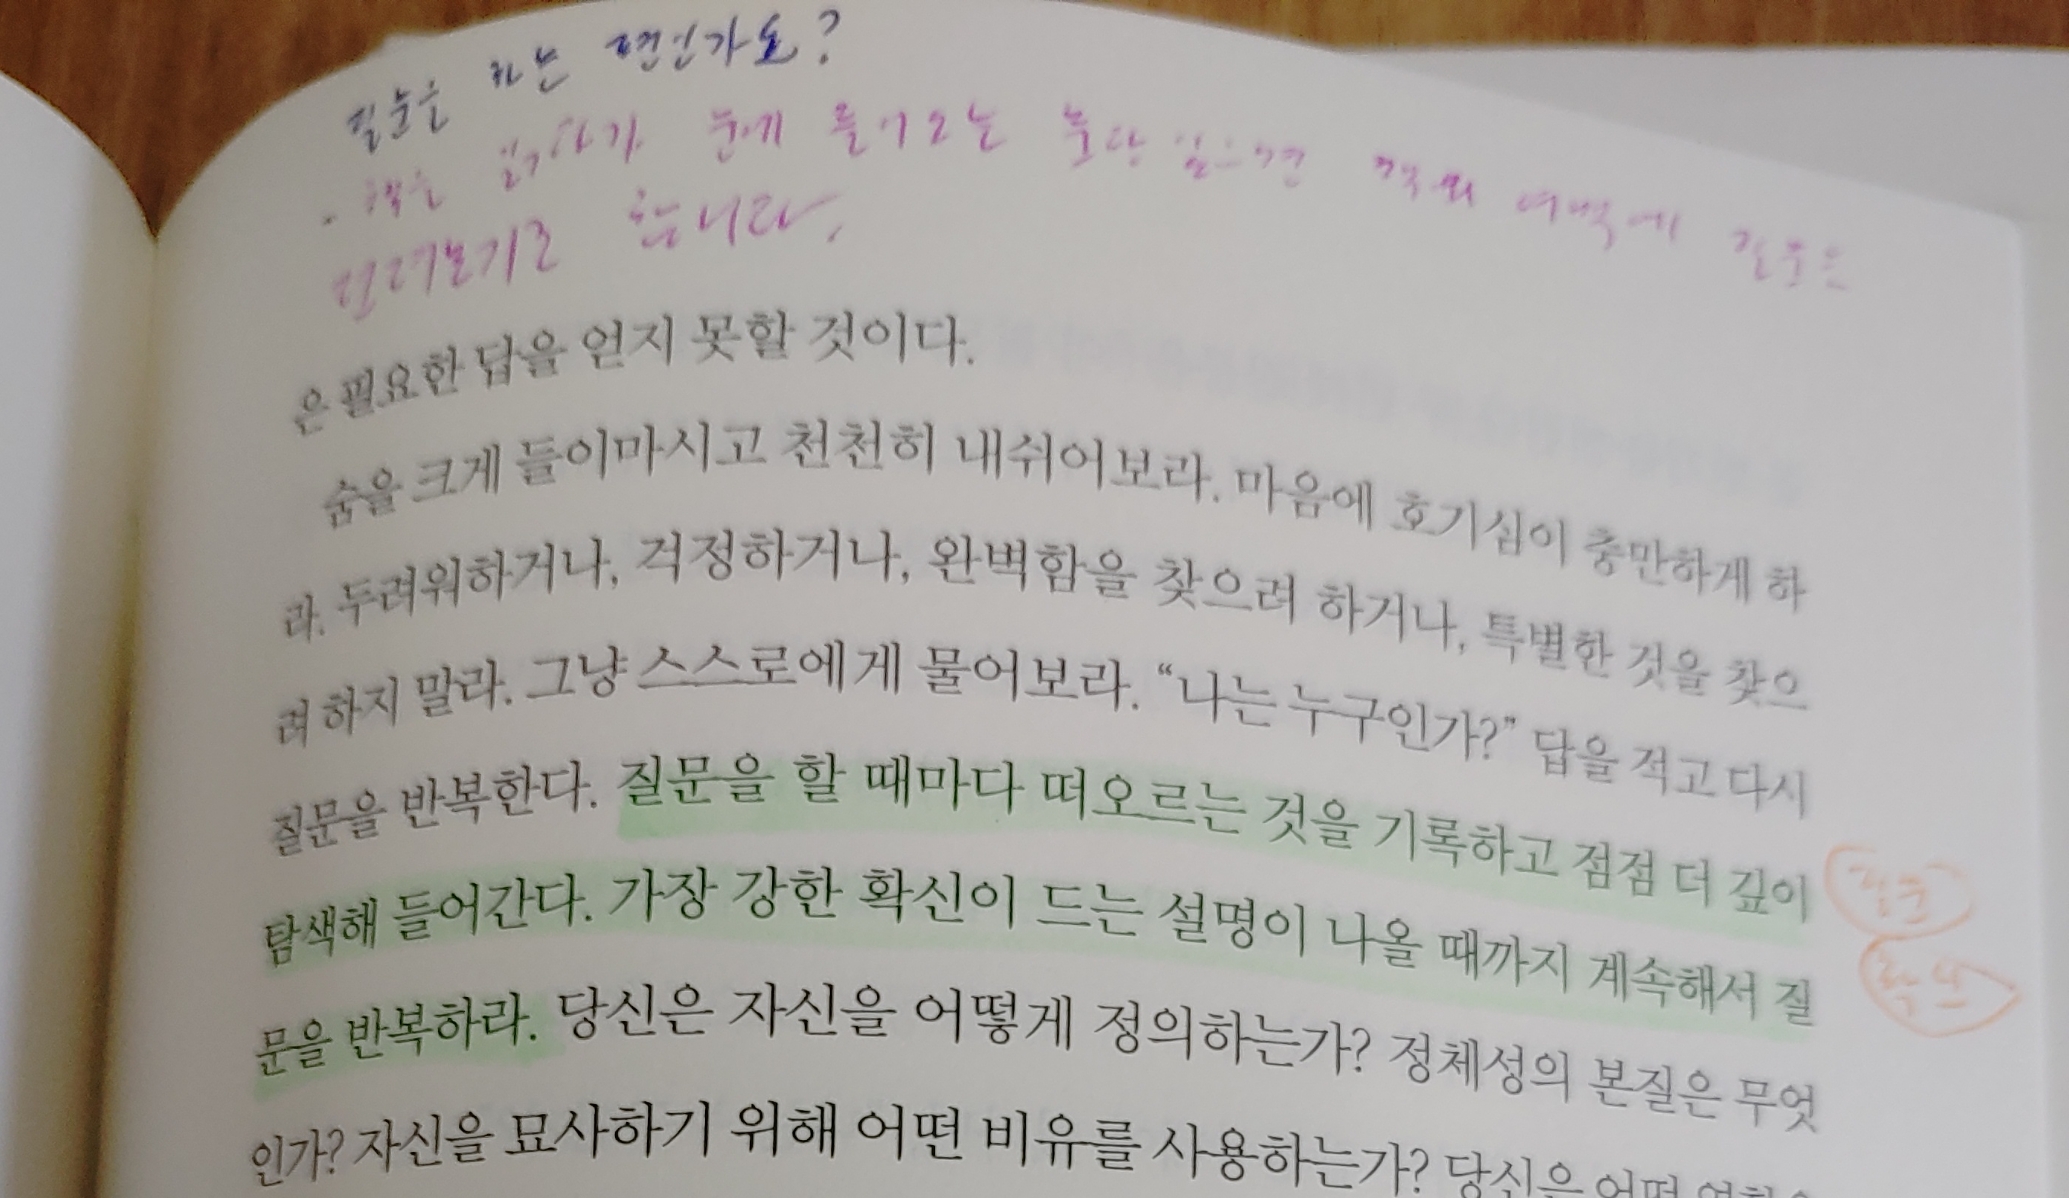 질문을 하는 편인가요?
· 책을 읽다가 눈에 들어오는 문단 있으면 책의 여백에 질문을
던져보기로 합니다.
은 필요한 답을 얻지 못할 것이다.
숨을 크게 들이마시고 천천히 내쉬어보라. 마음에 호기심이 충만하게 하
라. 두려워하거나, 걱정하거나, 완벽함을 찾으려 하거나, 특별한 것을 찾으
려 하지 말라. 그냥 스스로에게 물어보라. “나는 누구인가?” 답을 적고 다시
질문을 반복한다. 질문을 할 때마다 떠오르는 것을 기록하고 점점 더 깊이
탐색해 들어간다. 가장 강한 확신이 드는 설명이 나올 때까지 계속해서 질
문을 반복하라. 당신은 자신을 어떻게 정의하는가? 정체성의 본질은 무엇
인가? 자신을 묘사하기 위해 어떤 비유를 사용하는가? 당신은 어떤
질문
확신